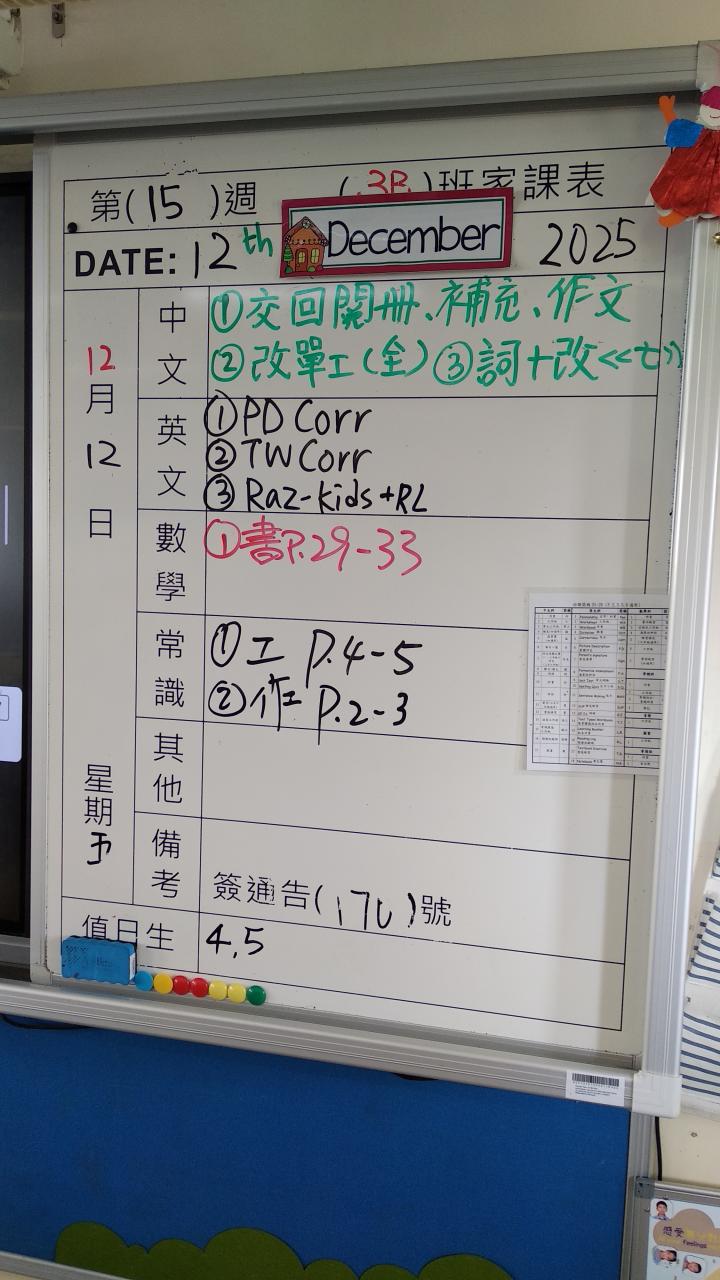 第(15)週 (3B)班家課表
DATE: 12th December 2025
12月12日 星期五
中文
①交回閱冊、補充、作文
②改單工(全) ③詞+改<<七>>
英文
①PD Corr
②TW Corr
③Raz-kids+RL
數學
①書P.29-33
常識
①工 P.4-5
②作 P.2-3
其他
備考
簽通告(170)號
值日生 4,5
感受
Feelings